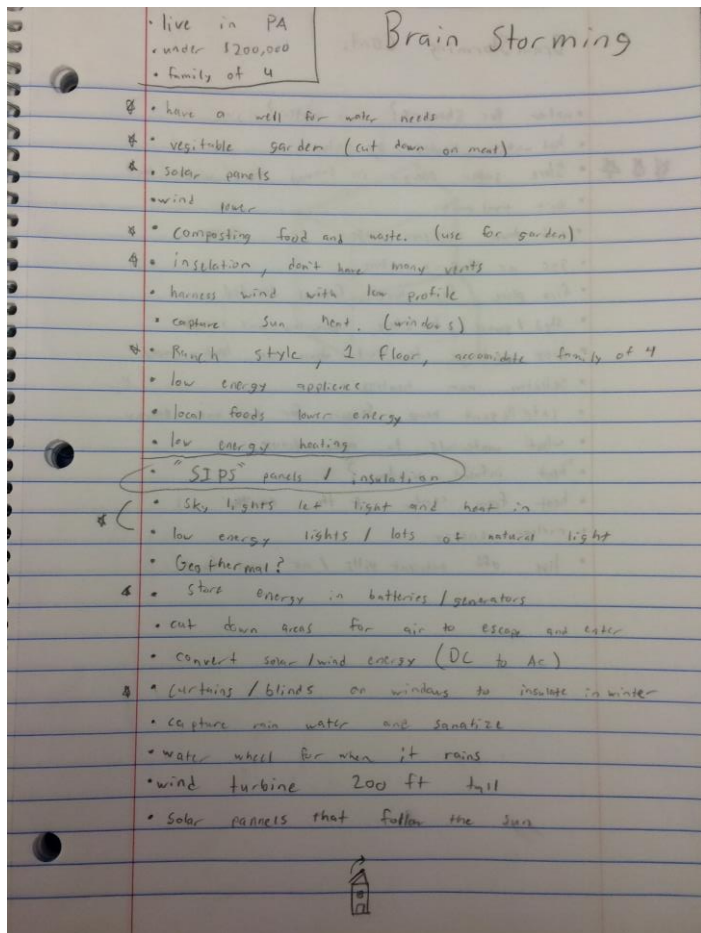 • live in PA
• under $200,000
• family of 4
Brain Storming
• have a well for water needs
• vegitable garden (cut down on meat)
• solar panels
• wind power
• composting food and waste. (use for garden)
• inselation, don't have many vents
• harness wind with low profile
• capture sun heat. (windows)
• Ranch style, 1 floor, accomidate family of 4
• low energy appliences
• local foods lower energy
• low energy heating
• "SIPS" panels / insulation
• Sky lights let light and heat in
• low energy lights / lots of natural light
• Geothermal?
• store energy in batteries / generators
• cut down areas for air to escape and enter
• convert solar/wind energy (DC to AC)
• Curtains / blinds on windows to insulate in winter
• capture rain water and sanatize
• water wheel for when it rains
• wind turbine 200 ft tall
• Solar pannels that follow the sun